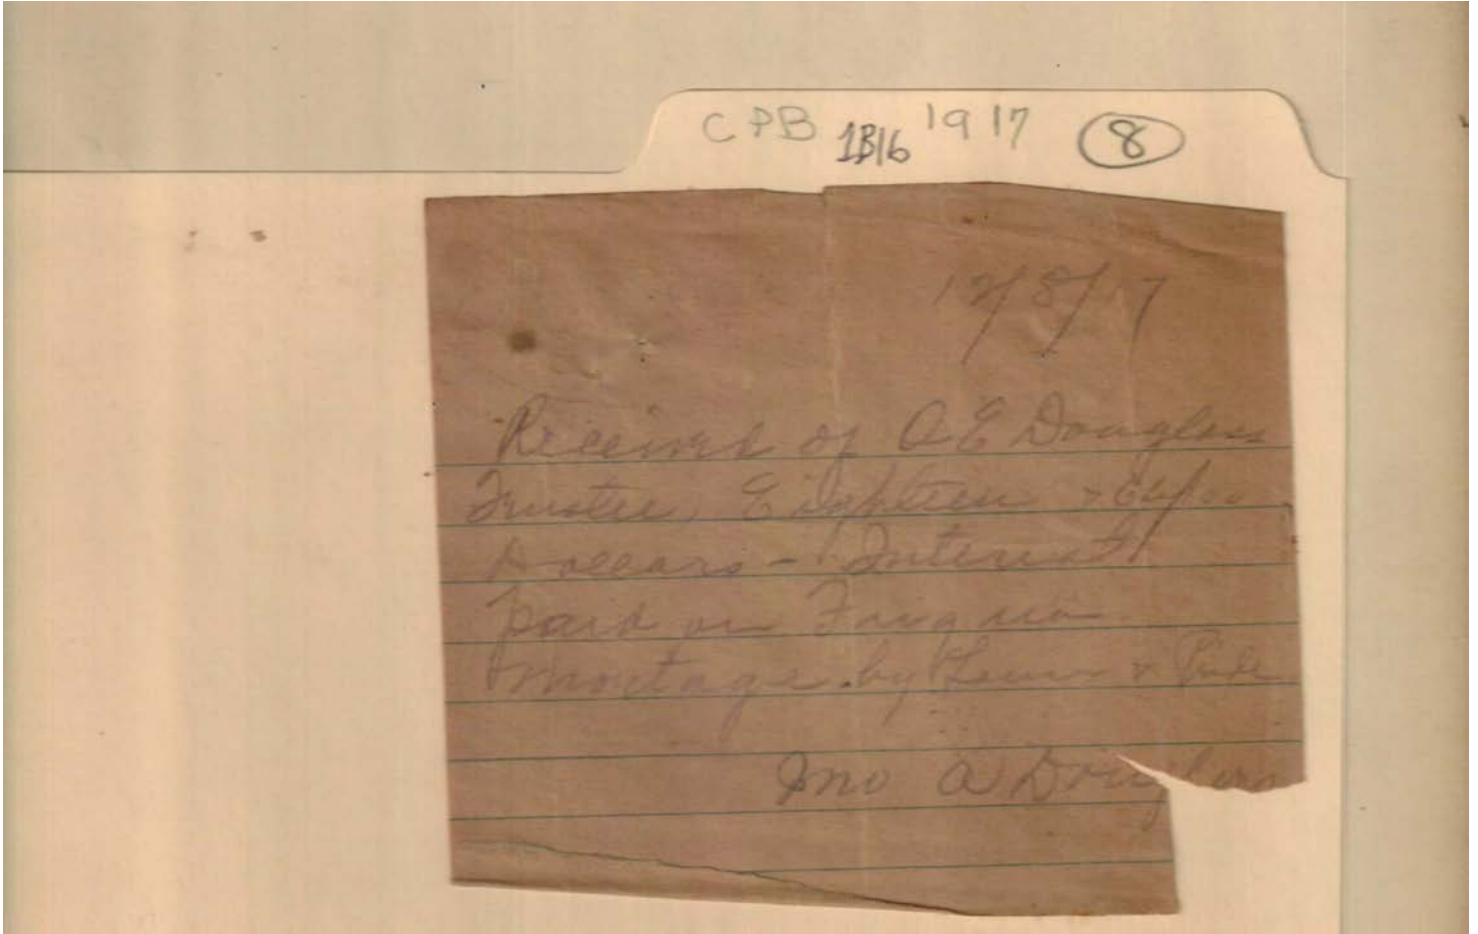 CPB 1B16 1917 8
12/8/17
Received of A E Douglass
Trustee, Eighteen &
Dollars - Interest
paid on
Mortage by Lewis &
Jno A Douglass